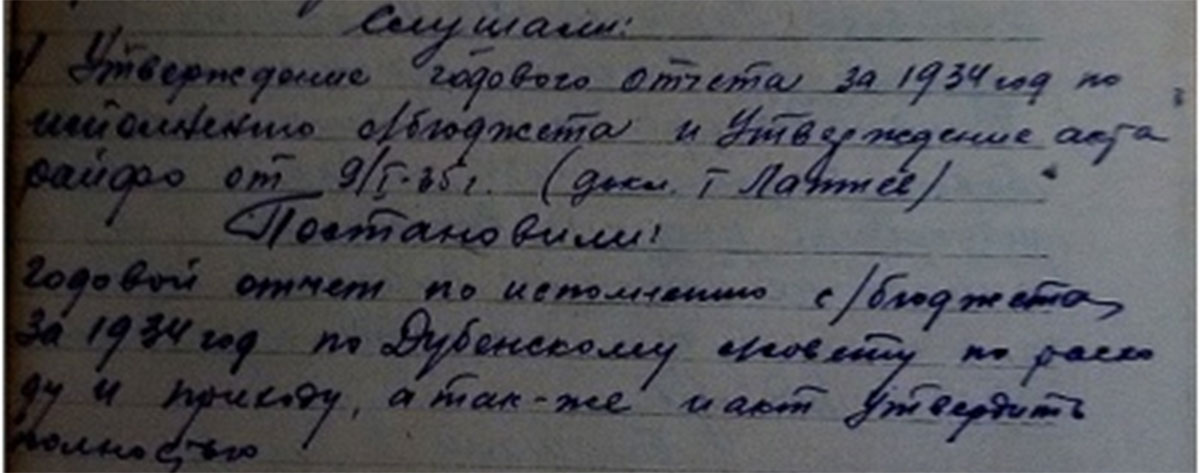 Слушали:
1) Утверждение годового отчета за 1934 год по
исполнению с/бюджета и Утверждение акта
райфо от 9/I-35г. (докл. т Лаптев)
Постановили:
Годовой отчет по исполнению с/бюджета,
за 1934 год по Дубенскому с/совету по расхо
ду и приходу, а так-же и акт утвердить
полностью